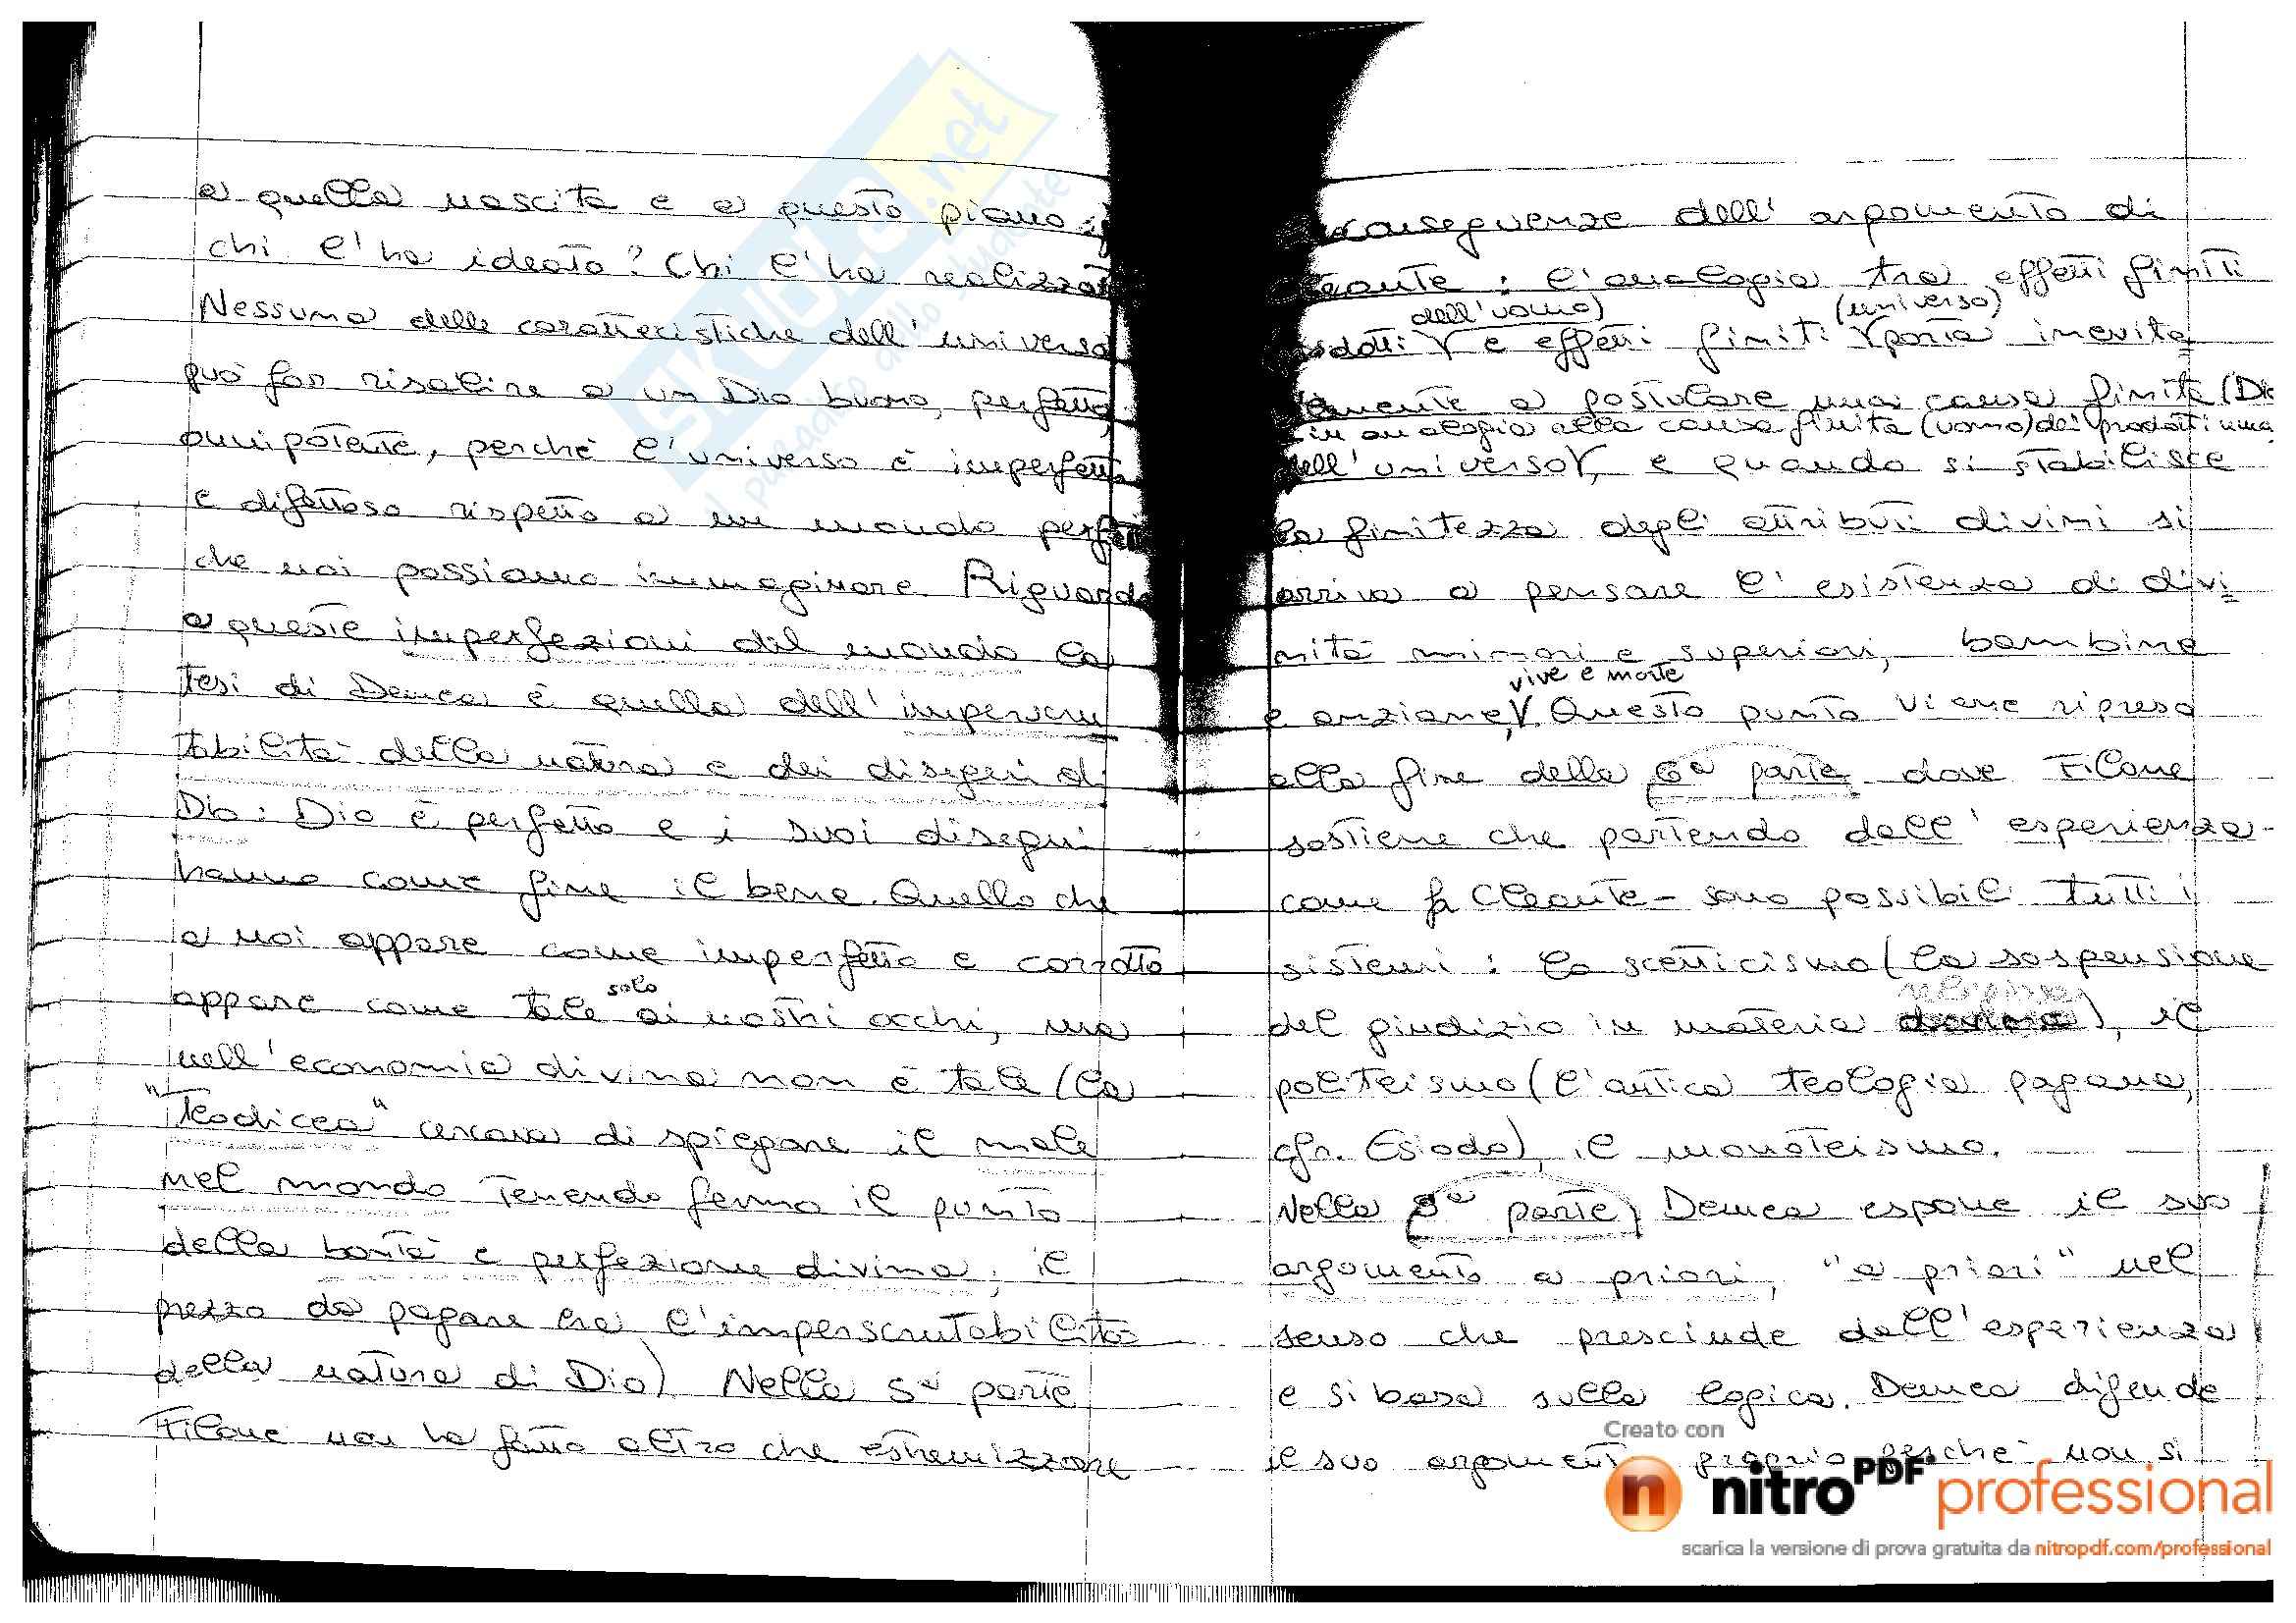 a quella nascita e a questo piano:
chi l'ha ideato? Chi l'ha realizzato
Nessuna delle caratteristiche dell'universo
può far risalire a un Dio buono, perfetto,
onnipotente, perché l'universo è imperfetto
e difettoso rispetto a un mondo perfetto
che noi possiamo immaginare. Riguardo
a queste imperfezioni del mondo la
tesi di Demea è quella dell'imperscru
tabilità della natura e dei disegni di
Dio: Dio è perfetto e i suoi disegni
hanno come fine il bene. Quello che
a noi appare come imperfetto e corrotto
appare come tale solo ai nostri occhi, ma
nell'economia divina non è tale (la
"Teodicea" cercava di spiegare il male
nel mondo tenendo fermo il punto
della bontà e perfezione divina, il
prezzo da pagare era l'imperscrutabilità
della natura di Dio). Nella 5ª parte
Filone non ha fatto altro che estremizzare
conseguenze dell'argomento di
Cleante: l'analogia tra effetti finiti
prodotti (dell'uomo) e effetti finiti (universo) porta inevita=
bilmente a postulare una causa finita (Dio
in analogia alla causa finita (uomo) dei prodotti uma
dell'universo, e quando si stabilisce
la finitezza degli attributi divini si
arriva a pensare l'esistenza di divi=
nità minori e superiori, bambine
e anziane, vive e morte. Questo punto viene ripreso
alla fine della 6ª parte dove Filone
sostiene che partendo dall'esperienza -
come fa Cleante - sono possibili tutti i
sistemi: lo scetticismo (la sospensione
del giudizio in materia religiosa), il
politeismo (l'antica teologia pagana,
cfr. Esiodo), il monoteismo.
Nella 9ª parte, Demea espone il suo
argomento a priori, "a priori" nel
senso che prescinde dall'esperienza
e si basa sulla logica. Demea difende
il suo argomento proprio perché non si
SKUOLA.net
il paradiso dello studente
Creato con
nitroPDF professional
scarica la versione di prova gratuita da nitropdf.com/professional